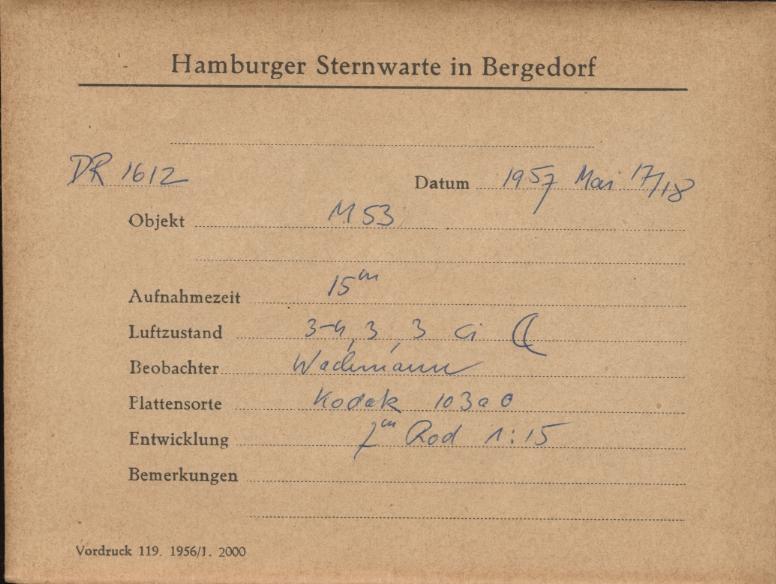 Hamburger Sternwarte in Bergedorf
DR 1612 Datum 1957 Mai 17/18
Objekt M 53
Aufnahmezeit 15ᵐ
Luftzustand 3-4, 3, 3 Ci ☾
Beobachter Wachmann
Plattensorte Kodak 103a O
Entwicklung 7ᵐ Rod 1:15
Bemerkungen
Vordruck 119. 1956/1. 2000